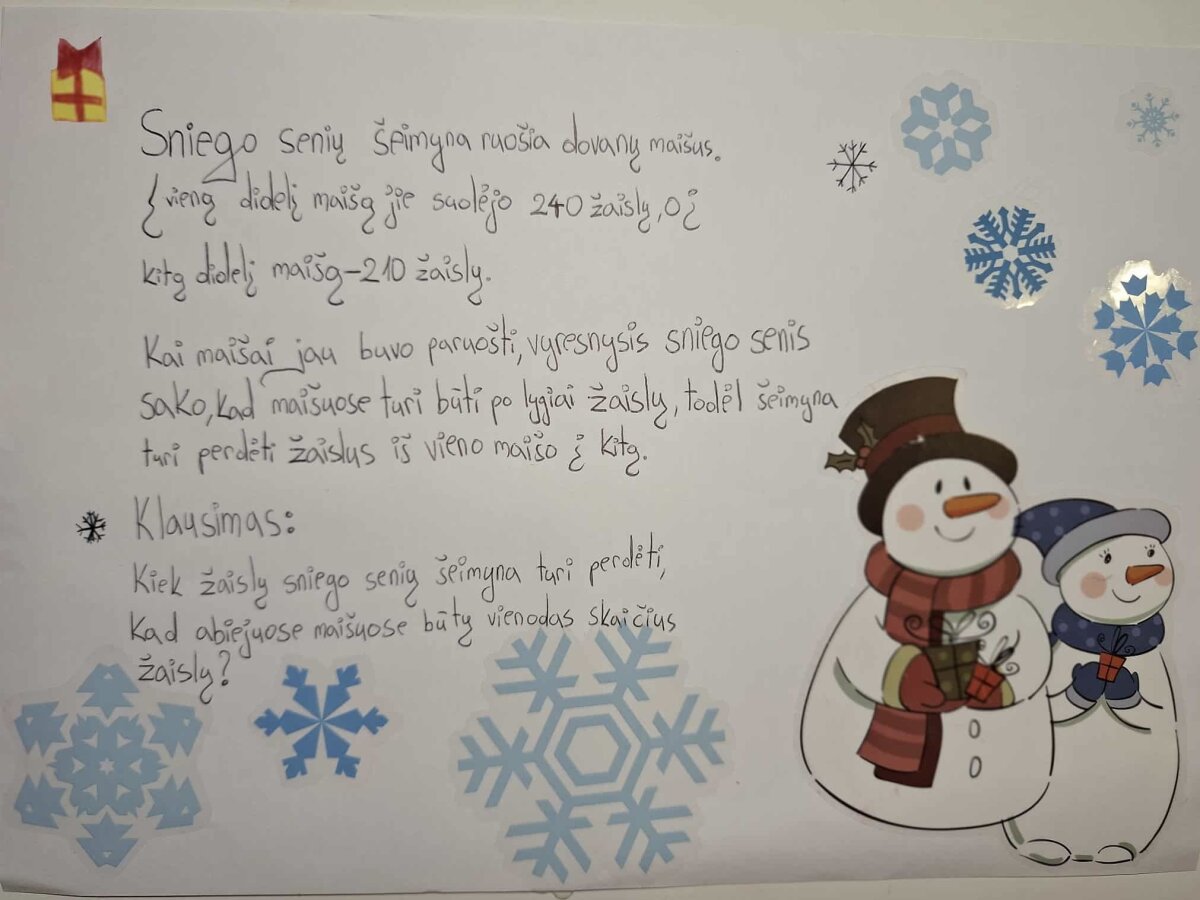 Sniego senių šeimyna ruošia dovanų maišus.
Į vieną didelį maišą jie sudėjo 240 žaislų, o į
kitą didelį maišą-210 žaislų.
Kai maišai jau buvo paruošti, vyresnysis sniego senis
sako, kad maišuose turi būti po lygiai žaislų, todėl šeimyna
turi perdėti žaislus iš vieno maišo į kitą.
Klausimas:
Kiek žaislų sniego senių šeimyna turi perdėti,
Kad abiejuose maišuose būtų vienodas skaičius
žaislų?